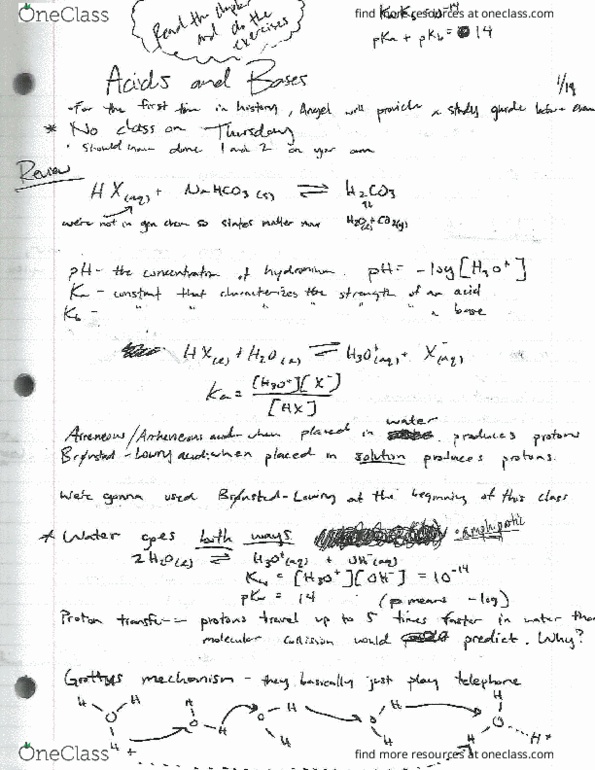 OneClass
find more resources at oneclass.com
Read the chapter
and do the
exercises
pKa + pKb = 14
Acids and Bases
1/19
- For the first time in history, Angel will provide a study guide before exam
* No class on Thursday
• Should have done 1 and 2 on your own
Review
HX(aq) + NaHCO3(s) ⇌ H2CO3
we're not in gen chem so states matter now H2O(l) + CO2(g)
pH - the concentration of hydronium. pH = -log[H3O+]
Ka - constant that characterizes the strength of an acid
Kb - " " " " " " a base
HX(l) + H2O(l) ⇌ H3O+(aq) + X-(aq)
Ka = [H3O+][X-] / [HX]
Arreneous/Arrheneous acid - when placed in water produces protons
Brønsted-Lowry acid: when placed in solution produces protons.
We're gonna used Brønsted-Lowry at the beginning of this class
* Water goes both ways
2H2O(l) ⇌ H3O+(aq) + OH-(aq)
Kw = [H3O+][OH-] = 10-14
pKw = 14 (p means -log)
Proton transfer - protons travel up to 5 times faster in water than
molecular collision would predict. Why?
Grottyps mechanism - they basically just play telephone
H H H H H
O O O O O
H H H H H
H + H+
OneClass
find more resources at oneclass.com